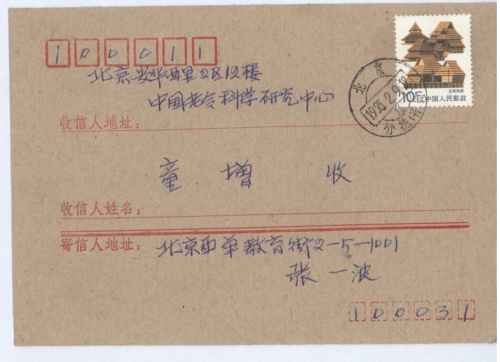 100011
北京安华西里2区12楼
中国老令科学研究中心
收信人地址:
童 增 收
收信人姓名:
寄信人地址: 北京西单教育街2-5-1001
张一波
100031
10分 中国人民邮政
北京